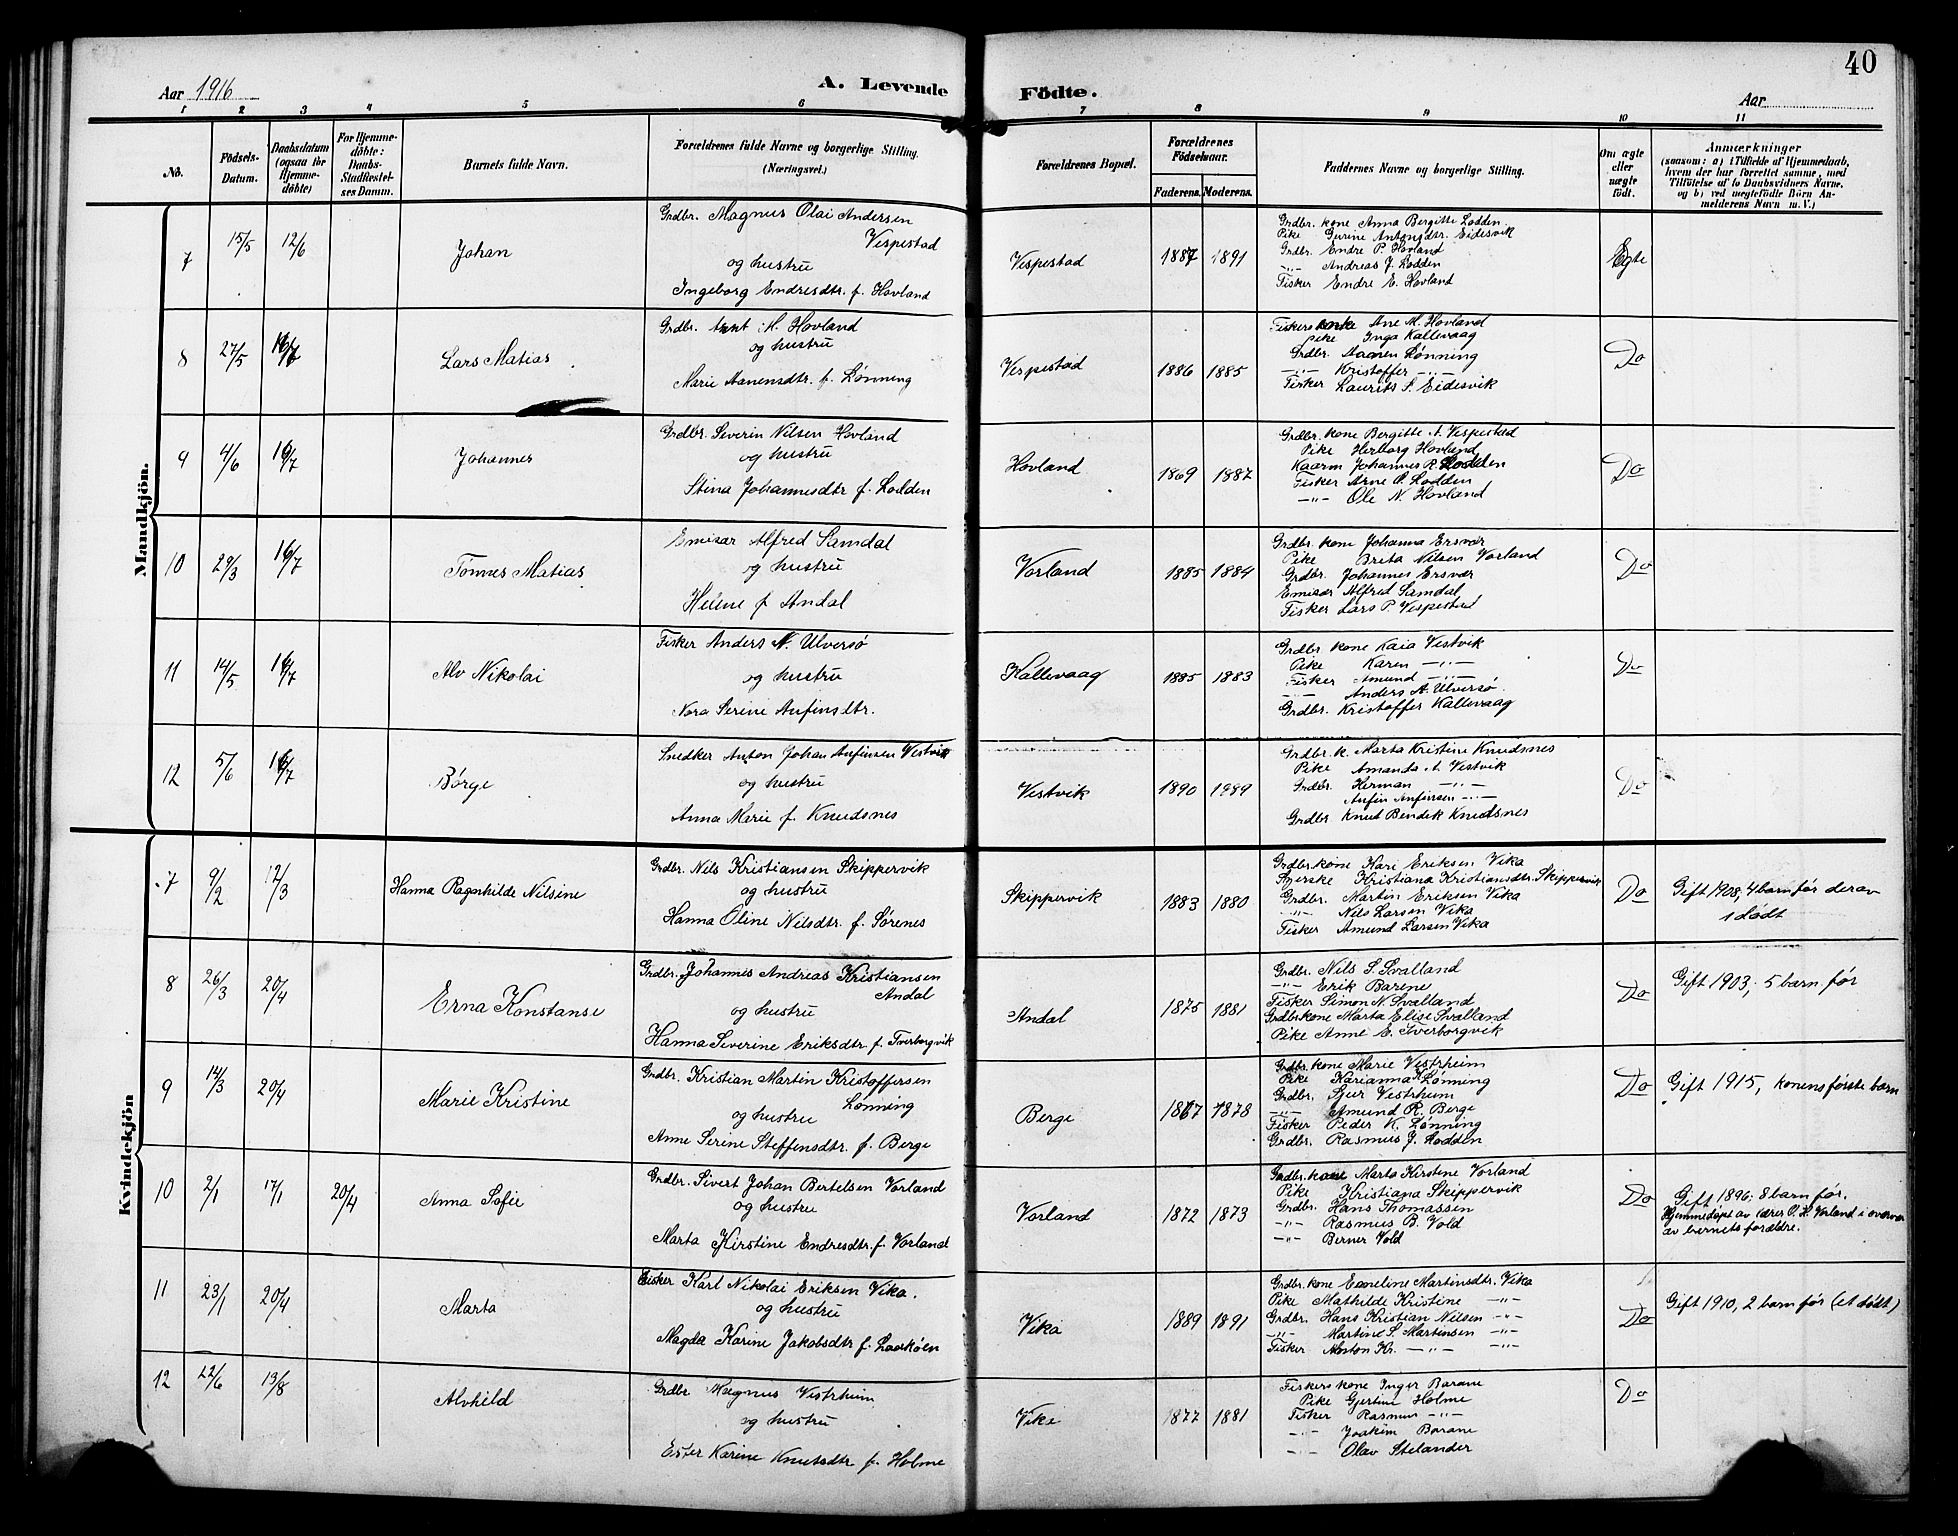 40
Aar 1916
A. Levende Födte.
Aar
1 2 3 4 5 6 7 8 9 10 11
No.
Födsels-Datum.
Daabsdatum (ogsaa for Hjemme-döbte)
For Hjemme-döbte: Daabs-Stadfæstel-ses Datum.
Barnets fulde Navn.
Forældrenes fulde Navne og borgerlige Stilling. (Næringsvei.)
Forældrenes Bopæl.
Forældrenes Födselsaar.
Faderens. Moderens.
Faddernes Navne og borgerlige Stilling.
Om ægte eller uægte födt.
Anmærkninger
(saasom: a) i Tilfælde af Hjemmedaab,
hvem der har forrettet samme, med
Tilföielse af to Daabsvidners Navne.
og b) ved uægtefödte Börn An-
melderens Navn m. V.)
Mandkjön.
7 15/5 12/6 Johan
Grdbr. Magnus Olai Andersen
Vespestad
og hustru
Ingeborg Endresdtr. f. Hovland
Vespestad 1887 1891
Grdbr. kone Anna Bergitte Lodden
Pike Gurine Antonsdtr. Eidesvik
Grdbr. Endre P. Hovland
-"- Andreas J. Lodden
Fisker Endre E. Hovland
Egte
8 27/5 16/7 Lars Matias
Grdbr. M. Hovland
og hustru
Marie Aanensdtr. f. Lønning
Vespestad 1886 1885
Fiskers kone Ane M. Hovland
Pike Inga Kallevaag
Grdbr. Aanen Lønning
-"- Kristoffer -"-
Fisker Laurits S. Eidesvik
Do
9 4/6 16/7 Johannes
Grdbr. Severin Nilsen Hovland
og hustru
Stina Johannesdtr f. Lodden
Hovland 1869 1887
Grdbr. kone Bergitte A. Vespestad
Pike Herborg Hovland
Kaarm Johannes R. Lodden
Fisker Arne P. Lodden
-"- Ole N. Hovland
Do
10 29/3 16/7 Tønnes Matias
Emisær Alfred Samdal
og hustru
Helene f Andal
Vorland 1885 1884
Grdbr. kone Johanna Ersvær
Pike Brita Nilsen Vorland
Grdbr. Johannes Ersvær
Emisær Alfred Samdal
Fisker Lars P. Vespestad
Do
11 14/5 16/7 Alv Nikolai
Fisker Anders N. Ulversø
og hustru
Nora Serine Anfinsdtr.
Kallevaag 1885 1883
Grdbr. kone Kaia Vestvik
Pike Karen -"-
Fisker Amund -"-
-"- Anders A. Ulversø.
Grdbr. Kristoffer Kallevaag
Do
12 5/6 16/7 Børge
Snedker Anton Johan Anfinsen Vestvik
og hustru
Anna Marie f. Knudsnes
Vestvik 1890 1889
Grdbr. k. Marta Kristine Knudsnes
Pike Amanda A. Vestvik
Grdbr. Herman -"-
Anfin Anfinsen -"-
Grdbr Knut Bendik Knudsnes
Do
Kvindekjön
7 9/2 12/3 Hanna Ragnhilde Nilsine
Grdbr. Nils Kristiansen Skippervik
og hustru
Hanna Oline Nilsdtr. f. Sørenes
Skippervik 1883 1880
Grdbr. kone Kari Eriksen Vika
Syerske Kristiana Kristiansdtr. Skippervik
Grdbr. Martin Eriksen Vika
-"- Nils Larsen Vika
Fisker Amund Larsen Vika
Do
Gift 1908, 4 barn før derav
1 dødt
8 26/3 20/4 Erna Konstanse
Grdbr. Johannes Andreas Kristiansen
Andal
og hustru
Hanna Severine Eriksdtr. f. Tverborgvik
Andal 1875 1881
Grdbr. Nils S. Svalland
-"- Erik Barene
Fisker Simon N. Svalland
Grdbr kone Marta Elise Svalland
Pike Anne E. Tverborgvik
Do
Gift 1903; 5 barn før
9 14/3 20/4 Marie Kristine
Grdbr. Kristian Martin Kristoffersen
Lønning
og hustru
Anne Serine Steffensdtr. f. Berge
Berge 1867 1878
Grdbr. kone Marie Vestrheim
Pike Karianna K Lønning
Grdbr. Sjur Vestrheim
-"- Amund R. Berge
Fisker Peder K. Lønning
Grdbr. Rasmus J. Lodden
Do
Gift 1915, konens første barn
10 2/1 17/1 20/4 Anna Sofie
Grdbr. Sivert Johan Bertelsen Vorland
og hustru
Marta Kirstine Endresdtr. f. Vorland
Vorland 1872 1873
Grdbr. kone Marta Kirstine Vorland
Pike Kristiana Skippervik
Grdbr. Hans Thomassen
-"- Rasmus B. Vold
-"- Berner Vold
Do
Gift 1896; 8 barn før.
Hjemmedøpt av lærer O. H. Vorland i overvær
av barnets forældre.
11 23/1 20/4 Marta
Fisker Karl Nikolai Eriksen Vika.
og hustru
Magda Karine Jakobsdtr f. Laaskøen
Vika 1889 1891
Grdbr. kone Emeline Martinsdtr. Vika
Pike Mathilde Kristine -"-
Grdbr. Hans Kristian Nilsen -"-
-"- Martine S. Martinsen -"-
Fisker Morton Kr. -"- -"-
Do
Gift 1910, 2 barn før (et dødt)
12 22/6 13/8 Alvhild
Grdbr Magnus Vestrheim
og hustru
Ester Karine Knutsdtr f. Holme
Vike 1877 1881
Fiskers kone Inger Barane
Pike Gjertine Holme
Fisker Rasmus -"-
-"- Joakim Barane
-"- Olav Stelander
Do